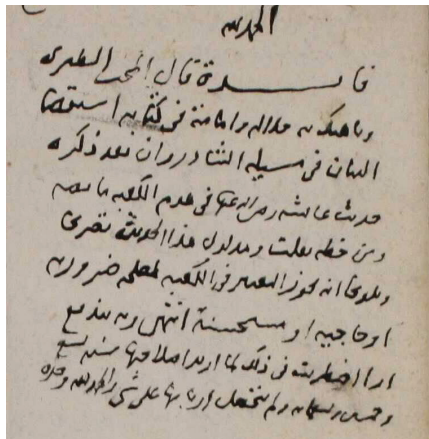 الحمد لله
فائدة قال المحب الطبري
وناهيك به جلالة وامامة في كتابه استقصا
البيان في مسئلة الشاذروان بعد ذكره
حديث عائشة رضي الله عنها في هدم الكعبة ما نصه
ومن خطه نقلت ومدلول هذا الحديث تصريحا
وتلويحا انه يجوز التغيير في الكعبة لمصلحة ضرورية
او حاجية او مستحسنة انتهى وبه يندفع
اراء اضطربت في ذلك لما اريد اصلاحها سنة تسع
وخمسين وتسعمائة ولم نتحصل اربابها على شي والحمد لله وحده